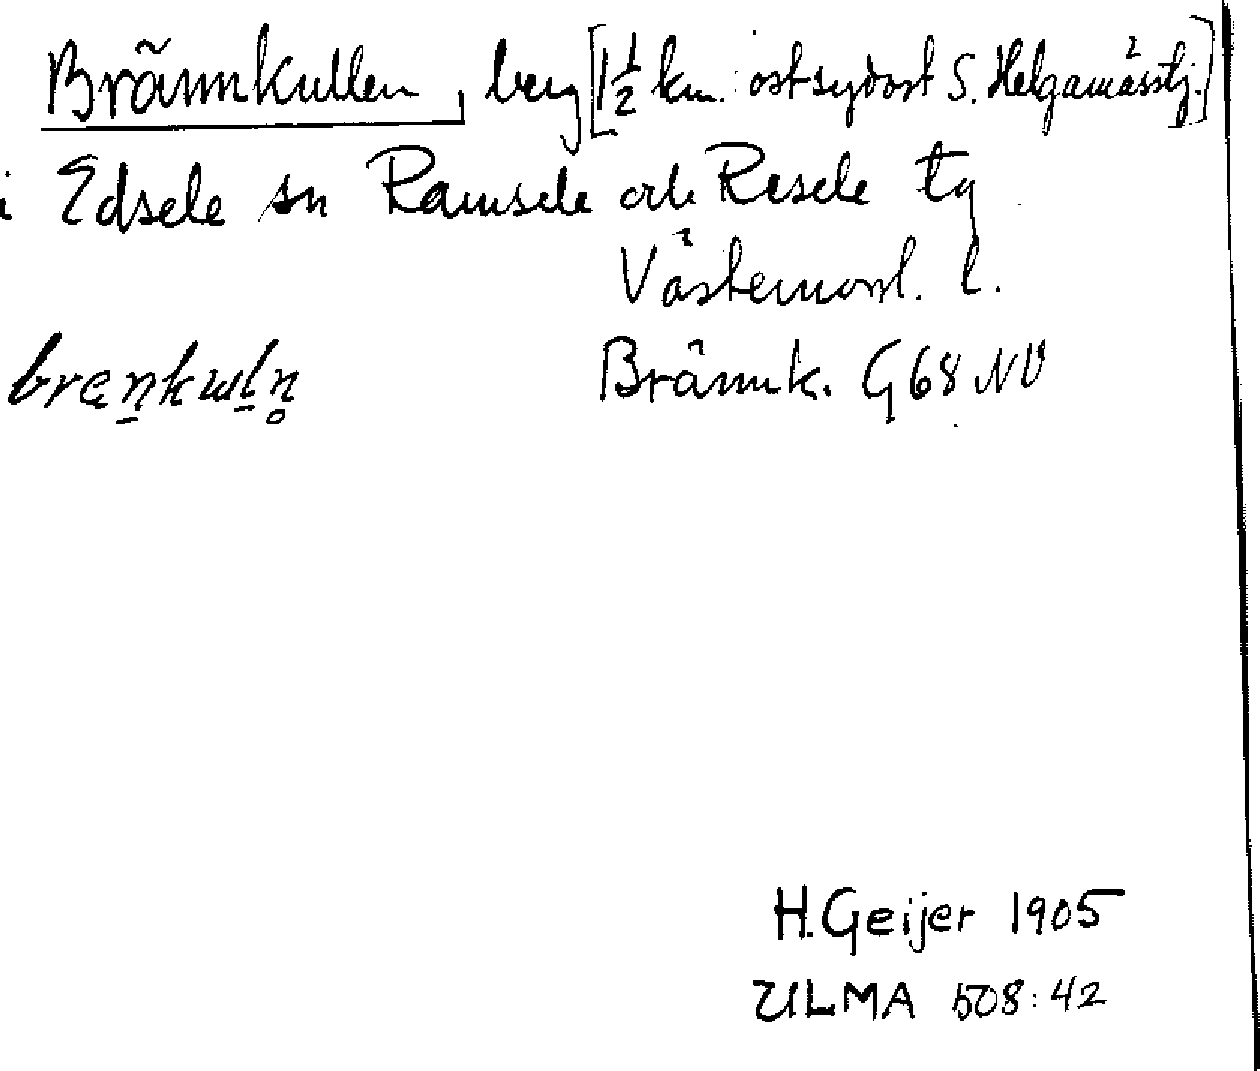 Brännkullen, berg [1 1/2 km. ostsydost S. Helgamässtj.]
i Edsele sn Ramsele och Resele tg
Västernorrl. l.
bræn̠kwl̠n̥ Brännk. G68 NV
H. Geijer 1905
ULMA 508:42